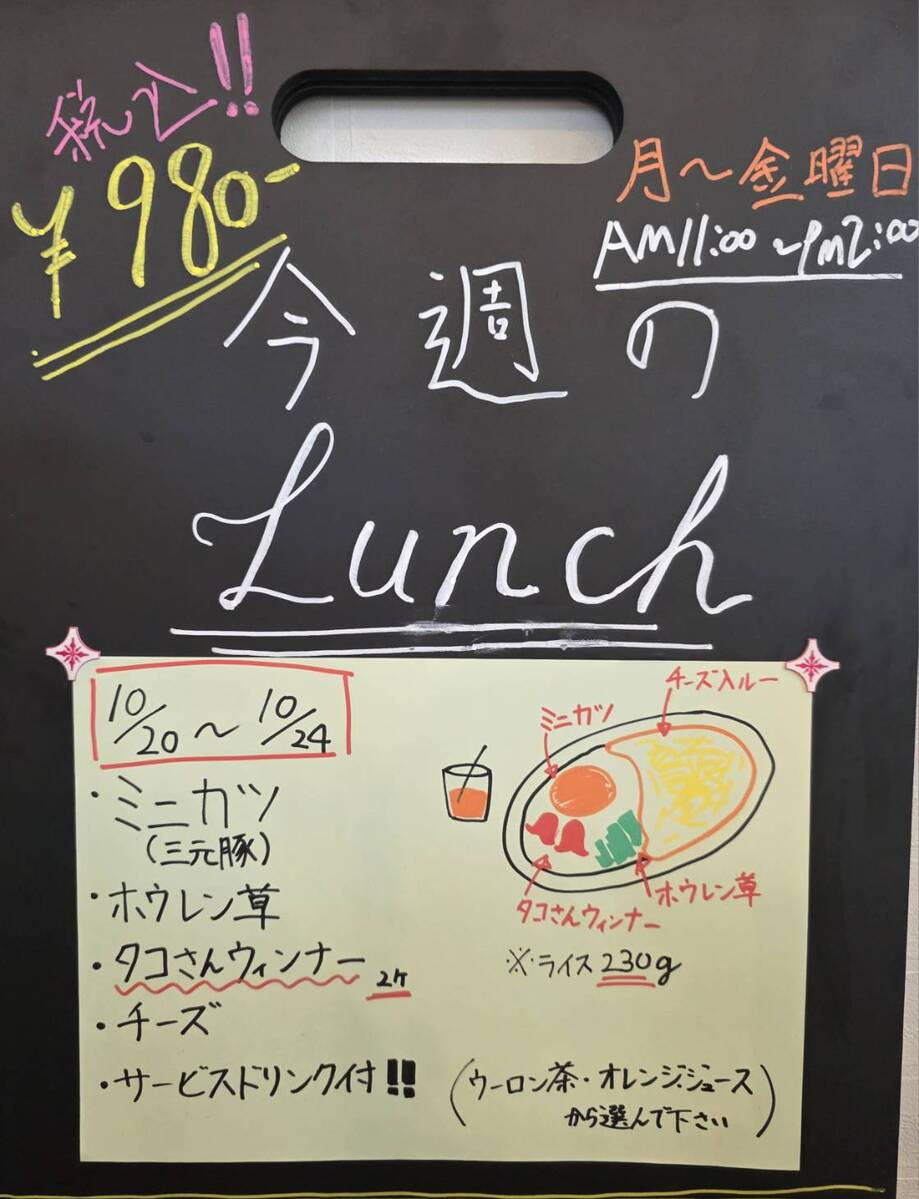 税込!!
¥980-
月～金曜日
AM11:00～PM2:00
今週の
Lunch
10/20～10/24
・ミニカツ
(三元豚)
・ホウレン草
・タコさんウィンナー 2ケ
・チーズ
・サービスドリンク付!!
(ウーロン茶・オレンジジュース
から選んで下さい)
チーズ入ルー
ミニカツ
タコさんウィンナー
ホウレン草
※ライス230g